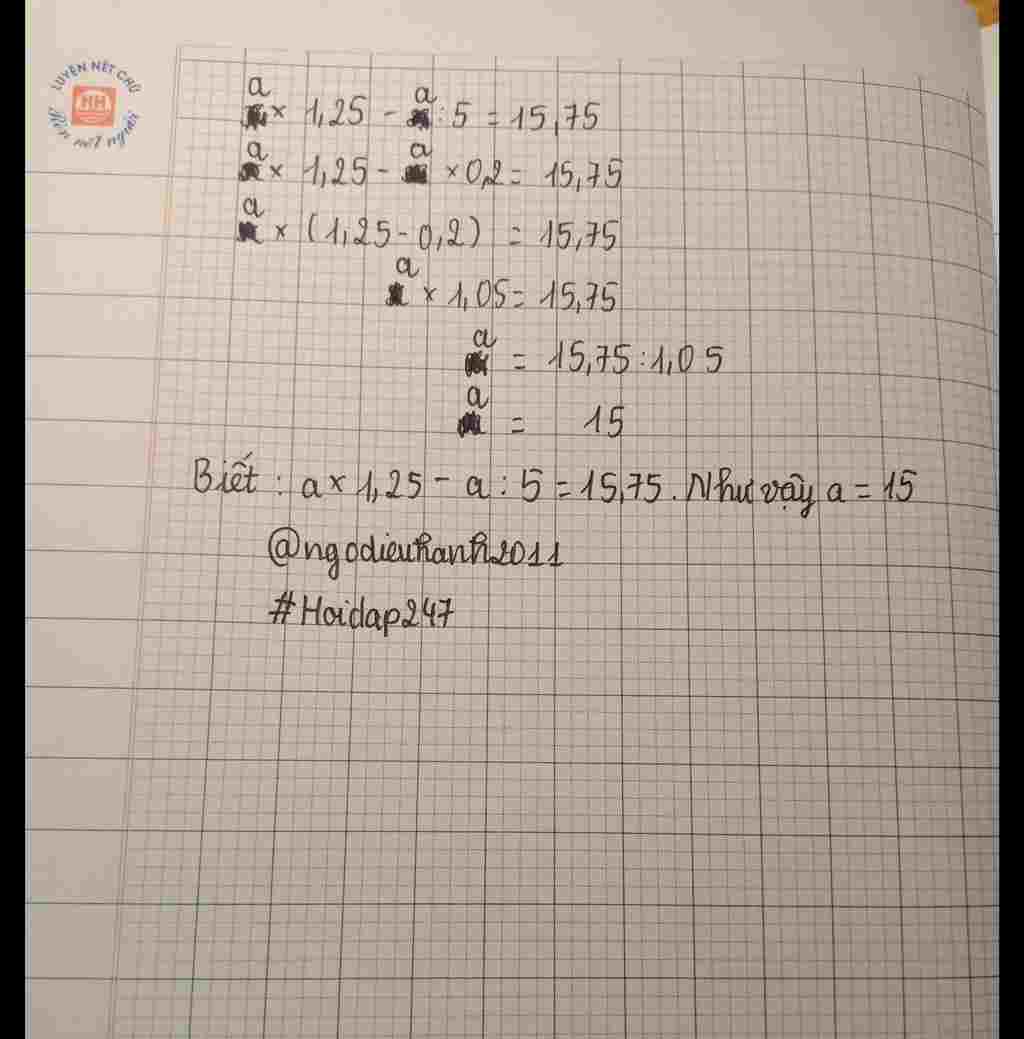 LUYỆN NÉT CHỮ
HH
Rèn nết người
a × 1,25 - a : 5 = 15,75
a × 1,25 - a × 0,2 = 15,75
a × (1,25 - 0,2) = 15,75
a × 1,05 = 15,75
a = 15,75 : 1,05
a = 15
Biết : a × 1,25 - a : 5 = 15,75. Như vậy a = 15
@ngodieuhanh2011
#Hoidap247